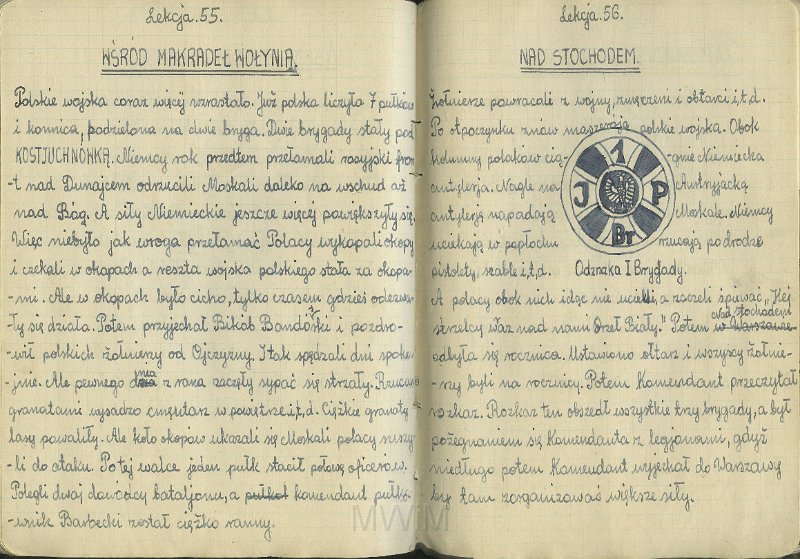 Lekcja 55.
WŚRÓD MAKRADEŁ WOŁYNIA.
Polskie wojska coraz więcej wzrastało. Już polska liczyła 7 pułków
i konnica, podzielona na dwie bryga. Dwie brygady stały pod
KOSTJUCHNÓWKĄ. Niemcy rok przedtem przełamali rosyjski fron-
-t nad Dunajcem odrzucili Moskali daleko na wschud aż
nad Bóg. A siły Niemieckie jeszcze więcej powiększyły się.
Więc niebyło jak wroga przełamać Polacy wykopali okopy
i czekali w okopach a reszta wojska polskiego stała za okopa-
-mi. Ale w okopach było cicho, tylko czasem gdzieś odezwa-
-ły się działa. Potem przyjechał Bikób Bandórski i pozdro-
-wił polskich żołnierzy od Ojczyzny. I tak spędzali dni spoko-
-jnie. Ale pewnego dnia z rana zaczęły sypać się strzały.
granatami wysadzo cmęntarz w powętrze i,t,d. Ciężkie granaty
lasy powaliły. Ale koło okopów ukazali się Moskali polacy ruszy-
-li do ataku. Po tej walce jeden pułk stacił połowę oficerów.
Polegli dwaj dowodcy bataljonu, a pułkol komendant pułko-
-wnik Barbecki został ciężko ranny.
Lekcja. 56.
NAD STOCHODEM.
Żołnierze powracali z wojny, zmęczeni i obtarci i,t,d.
Po otpoczynku znów maszerują polskie wojska. Obok
kolumny polaków cią- gnie Niemiecka
artylerja. Nagle na Austryjacką
artylerję napadają Moskale. Niemcy
uciekają w popłochu rzucają po drodze
pistolety, szable i,t,d.
1
J P
Br
Odznaka I Brygady.
A polacy obok nich idąc nie uciekli, a zaczeli śpiewać „Hej
strzelcy wraz nad nami Orzeł Biały." Potem w Warszawie nad stochodem
odbyła się rocznica. Ustawiono ołtarz i wszyscy żołnie-
-rzy byli na rocznicy. Potem Komendant przeczytał
rozkaz. Rozkaz ten obszedł wszystkie trzy brygady, a był
pożegnaniem się Komendanta z legjonami, gdyż
niedługo potem Komendant wyjechał do Warszawy
by tam zorganizować większe siły.
MWiM